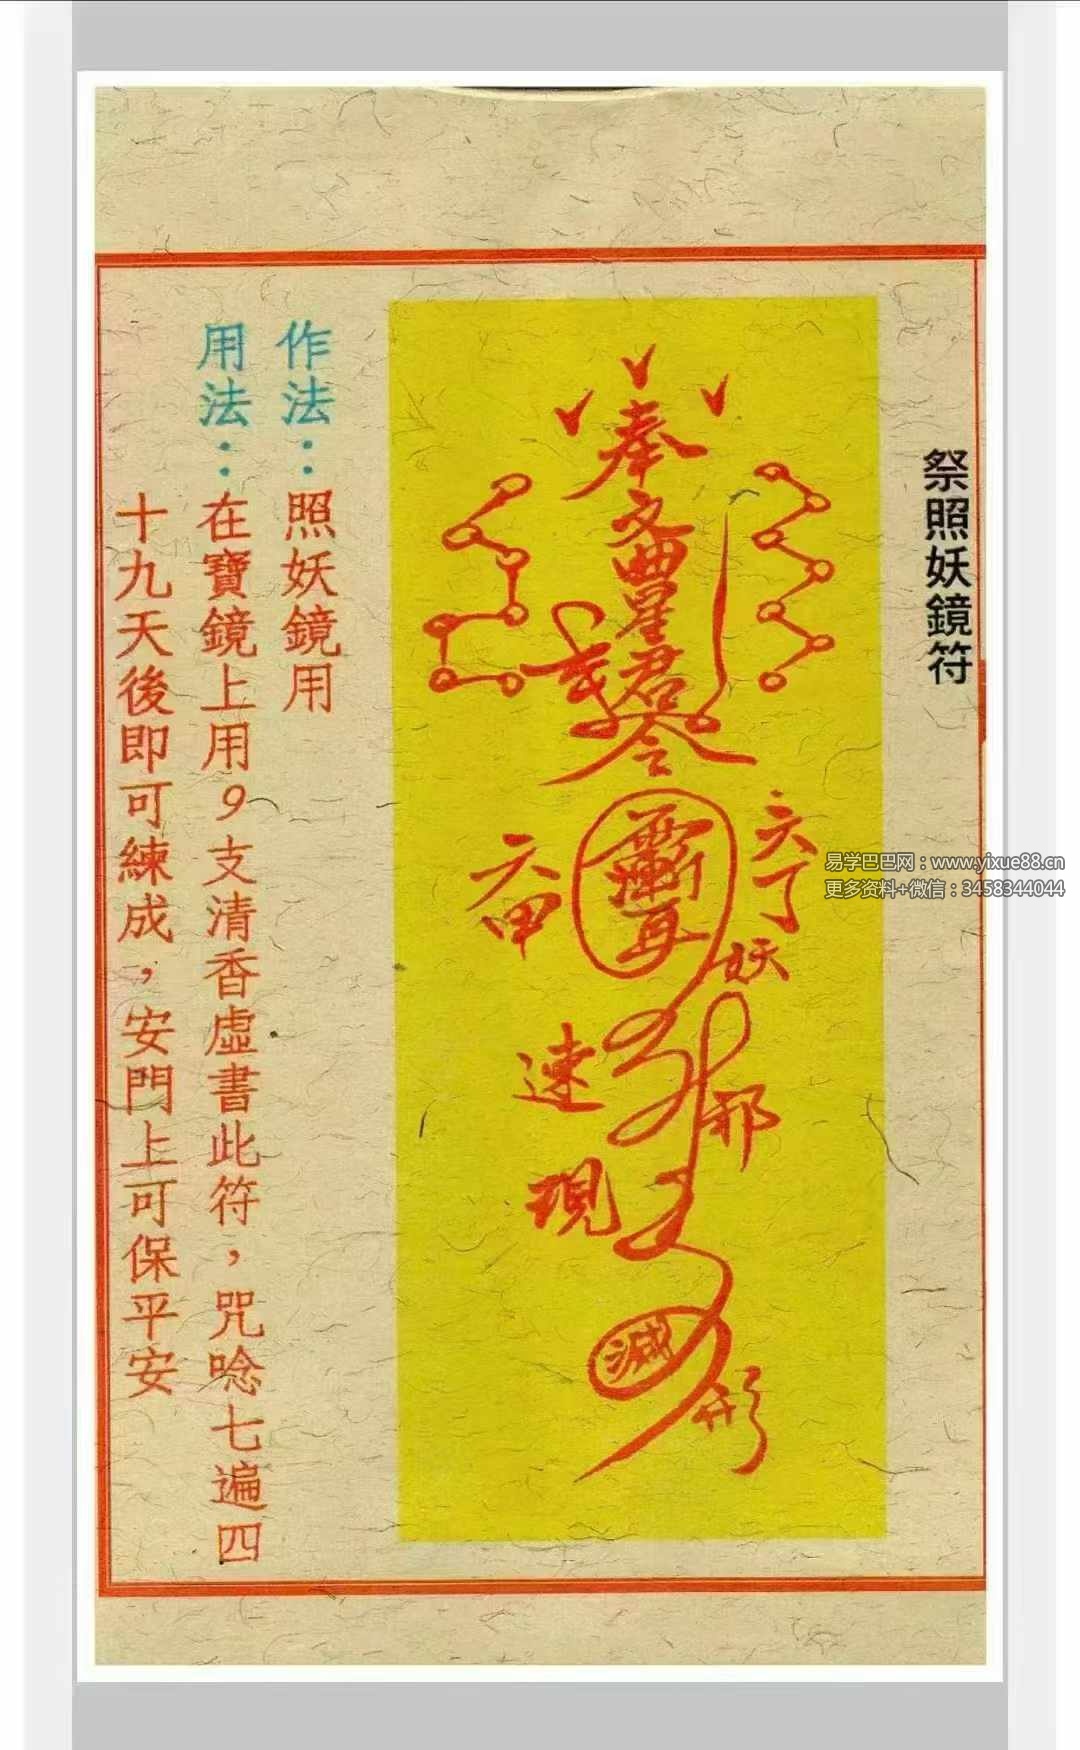 祭照妖鏡符
奉文曲星君令
六丁
六甲
妖
邪
速
現
滅
形
作法：照妖鏡用
用法：在寶鏡上用9支清香虛書此符，咒唸七遍四
十九天後即可練成，安門上可保平安
易学巴巴网：www.yixue88.cn
更多资料+微信：3458344044